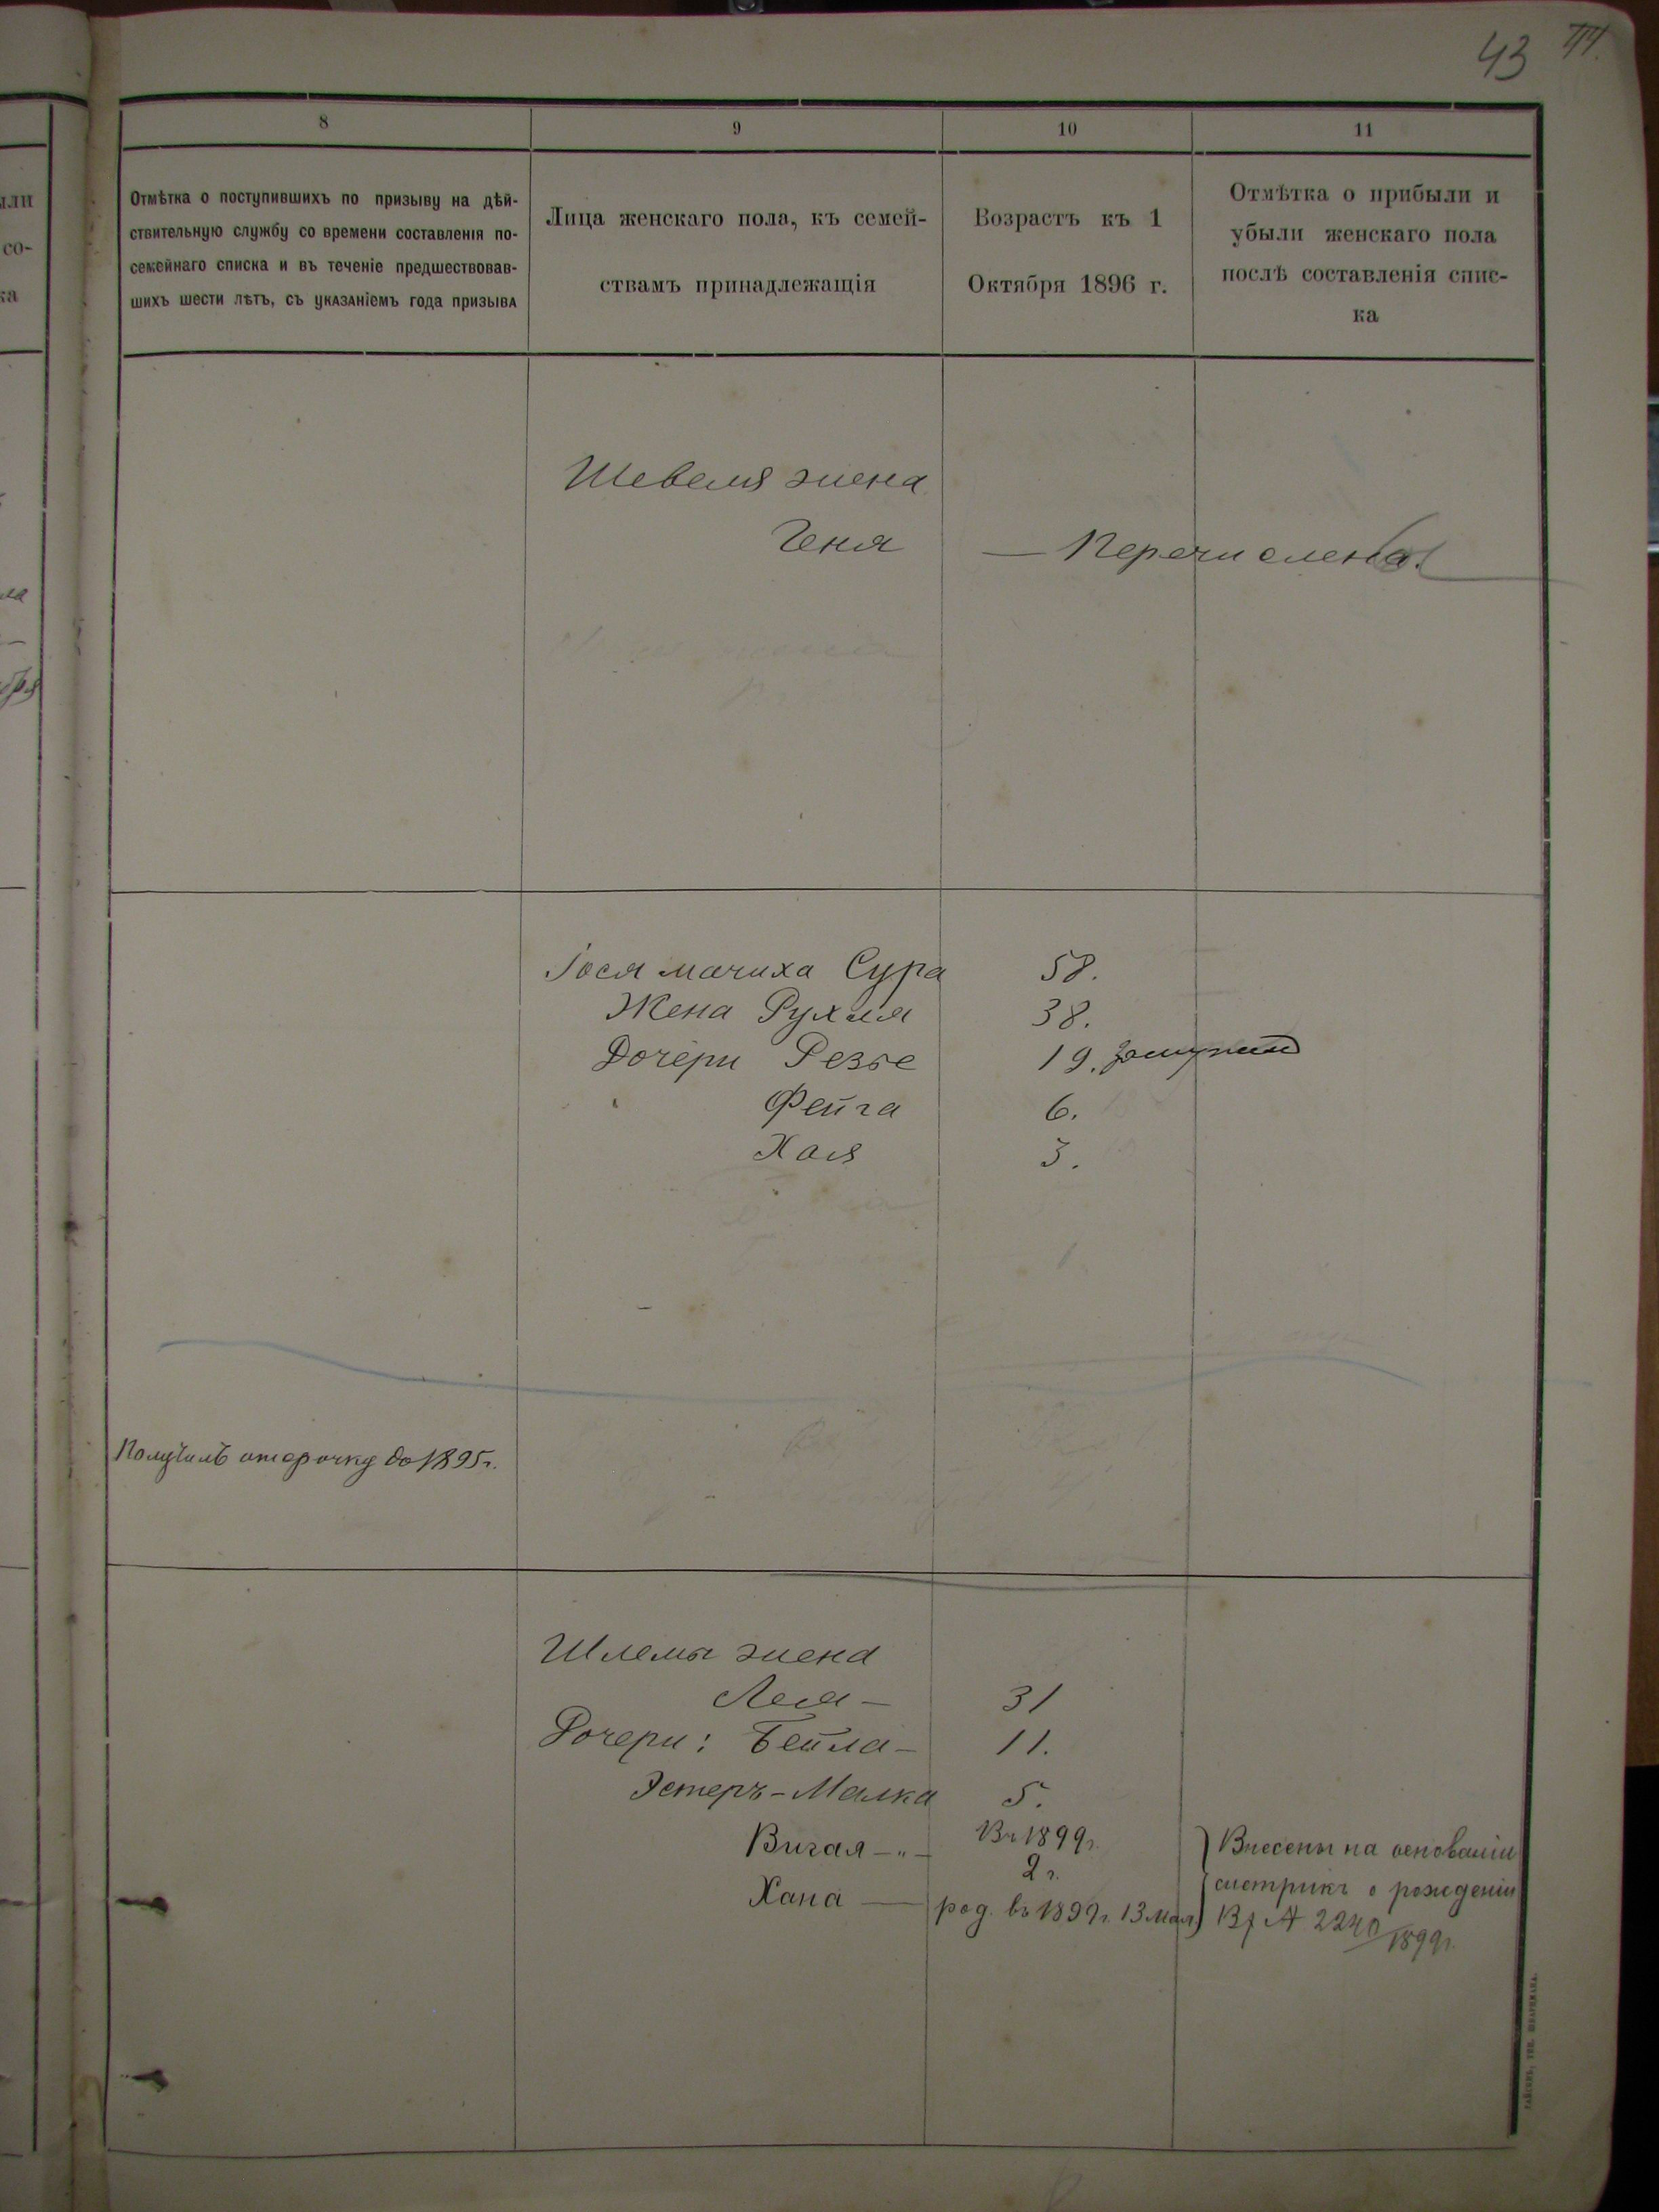 43
8
9
10
11
Отмѣтка о поступившихъ по призыву на дѣй-
ствительную службу со времени составленія по-
семейнаго списка и въ теченіе предшествовав-
шихъ шести лѣтъ, съ указаніемъ года призыва
Лица женскаго пола, къ семей-
ствамъ принадлежащія
Возрастъ къ 1
Октября 1896 г.
Отмѣтка о прибыли и
убыли женскаго пола
послѣ составленія спис-
ка
или
со-
ка
Шевеля жена
Геня — Перечислена.
Іося мачиха Сура 58.
Жена Рухля 38.
Дочери Резе 19. замужем
Фейга 6.
Хая 3.
Получилъ отсрочку до 1895 г.
Шлемы жена
Лея — 31
Дочери: Бейла — 11.
Эстеръ-Малка 5.
Вигая — " — Въ 1899 г.
2 г.
Хана — род. въ 1899 г. 13 мая
Внесены на основаніи
метрикъ о рожденіи
2240/1899 г.